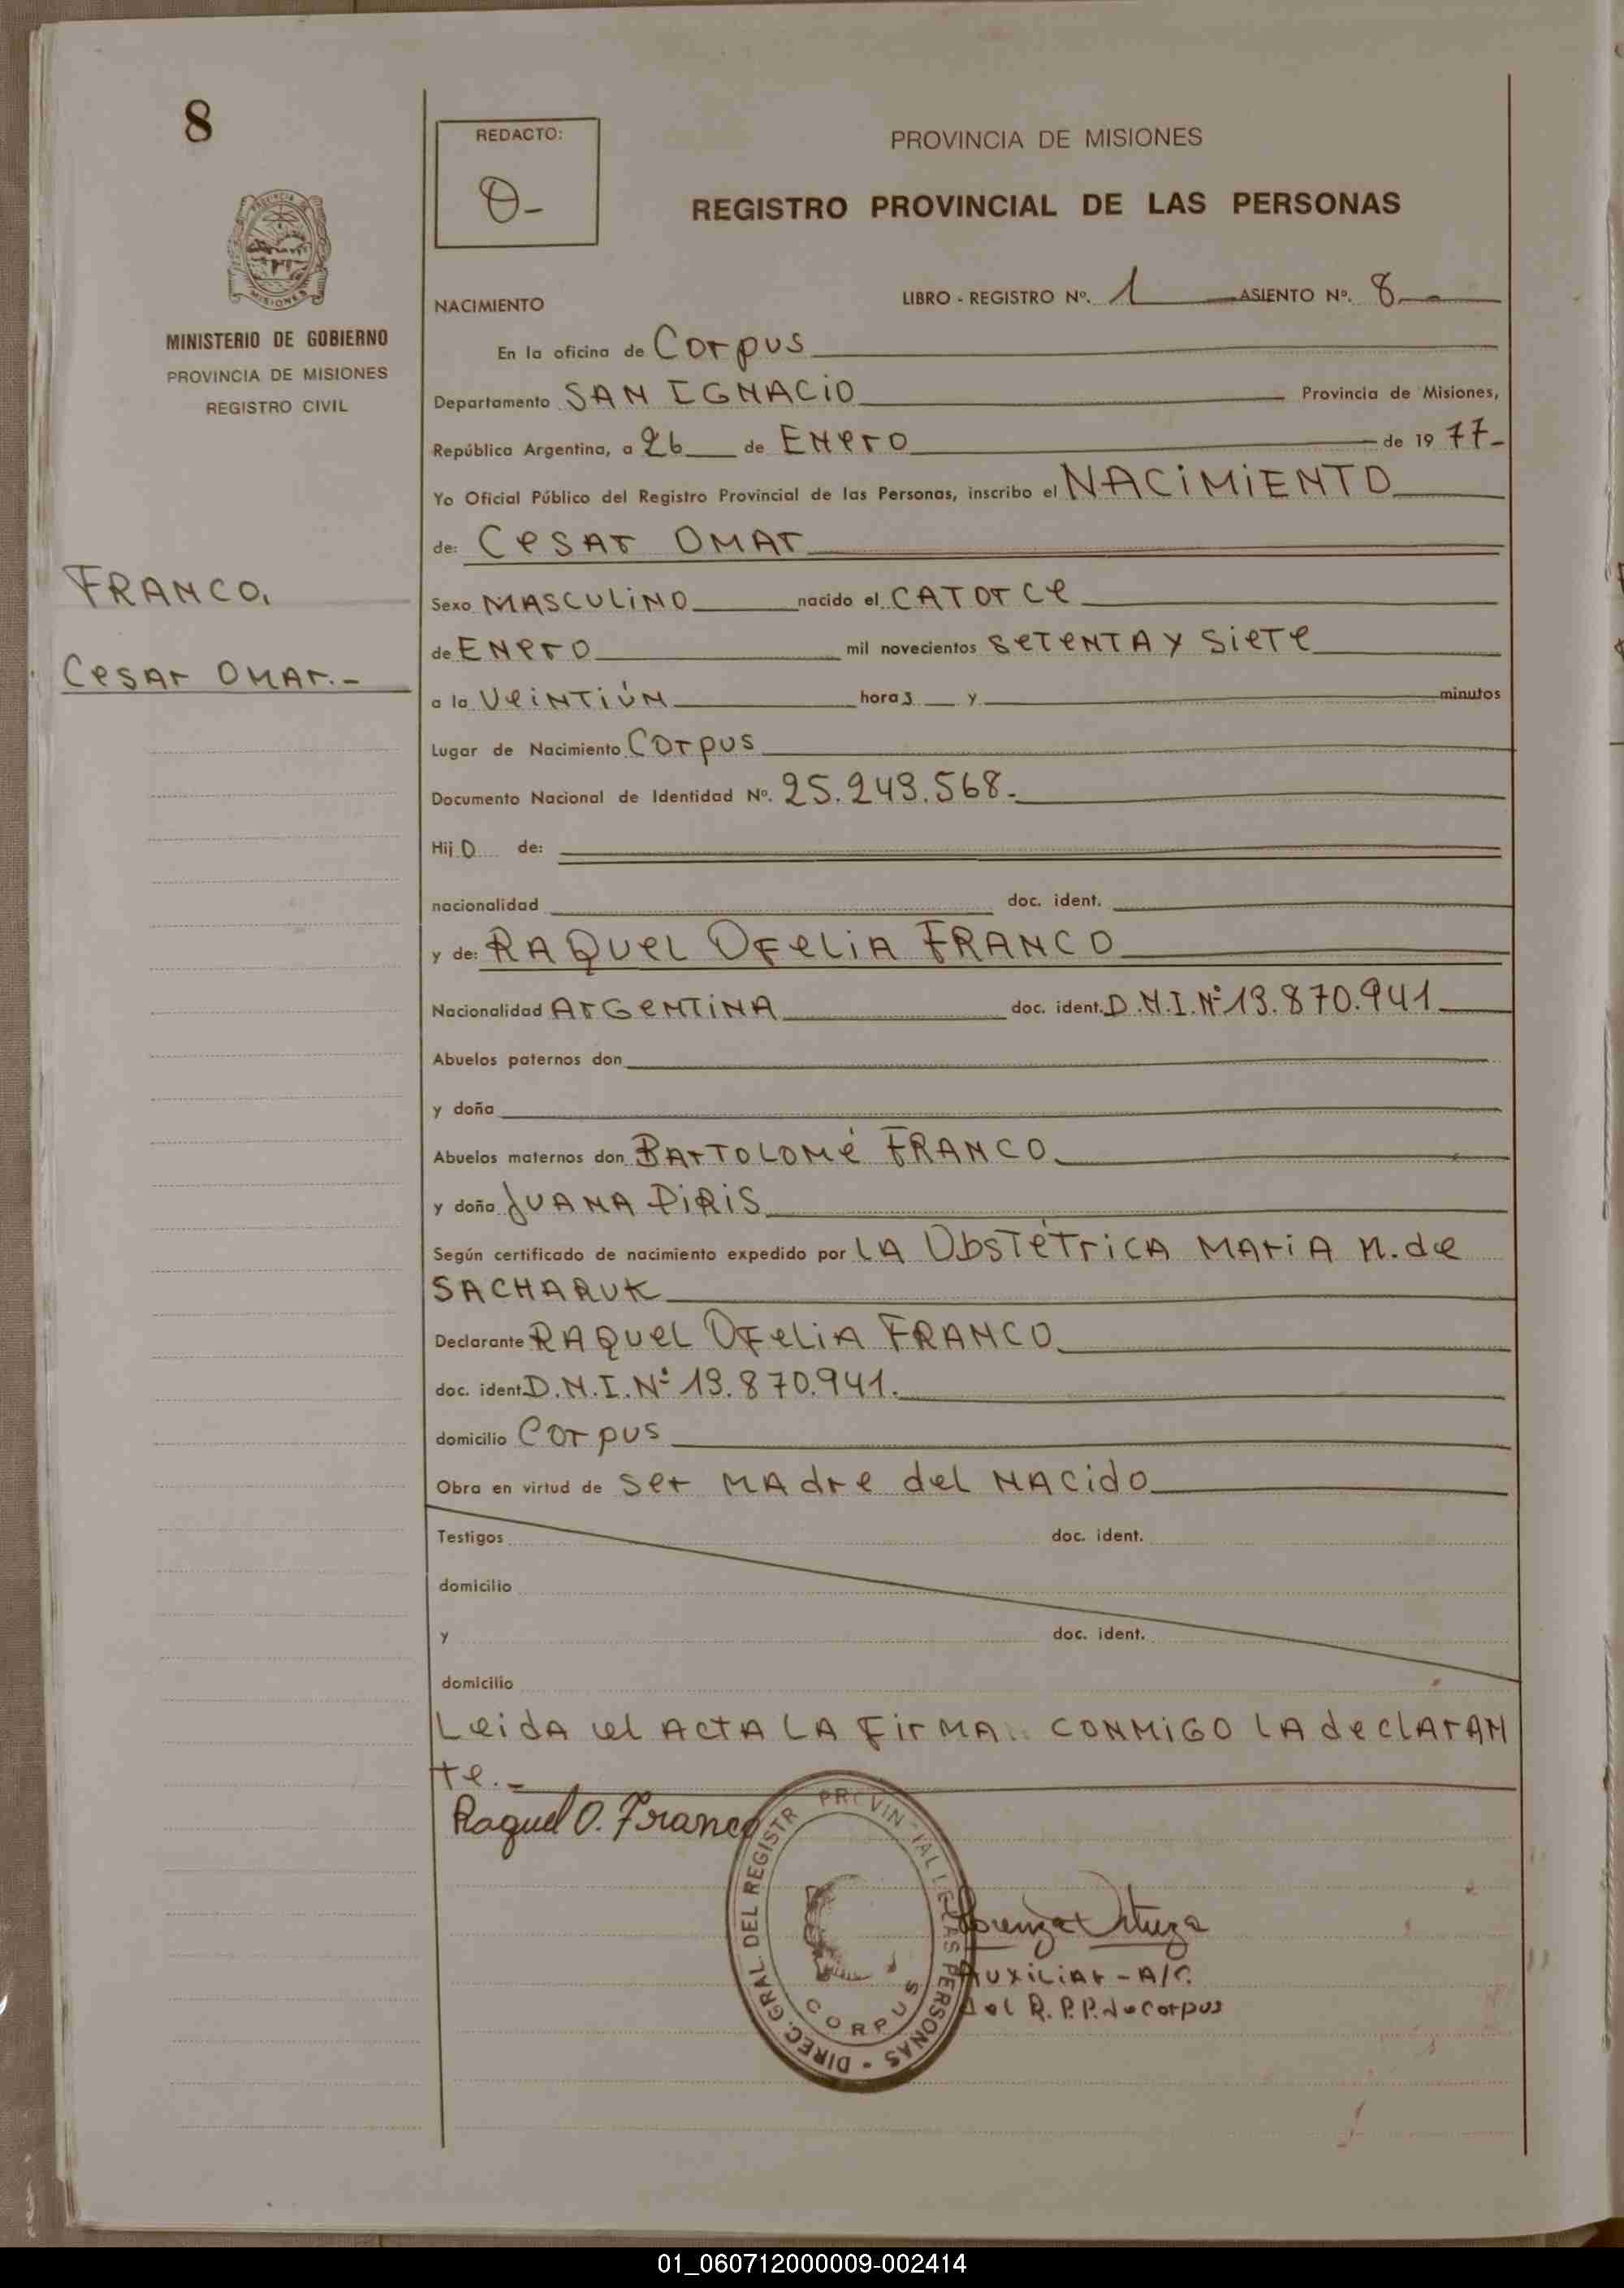 8
REDACTO:
O-
PROVINCIA DE MISIONES
REGISTRO PROVINCIAL DE LAS PERSONAS
MISIONES
MINISTERIO DE GOBIERNO
PROVINCIA DE MISIONES
REGISTRO CIVIL
FRANCO,
CeSAr OMAr.-
NACIMIENTO
LIBRO - REGISTRO Nº. 1 ASIENTO Nº. 8.-
En la oficina de Corpus
Departamento SAN IGNACiO Provincia de Misiones,
República Argentina, a 26 de ENerO de 19 77-
Yo Oficial Público del Registro Provincial de las Personas, inscribo el NACiMiENTO
de: CeSAr OMAr
Sexo MASCULiNO nacido el CATOrCe
de ENerO mil novecientos SeTeNTA y SieTe
a la VeiNTiÚN horas y minutos
Lugar de Nacimiento COrpus
Documento Nacional de Identidad Nº. 25.243.568.-
Hij O de:
nacionalidad doc. ident.
y de: RAQUeL OFeLiA FRANCO
Nacionalidad ArGeNTiNA doc. ident. D.N.I.Nº 13.870.941
Abuelos paternos don
y doña
Abuelos maternos don BArTOLOMé FRANCO
y doña JUANA PiRiS
Según certificado de nacimiento expedido por LA ObSTéTriCA MAriA N. de
SACHARUK
Declarante RAQUeL OFeLiA FRANCO
doc. ident. D.N.I.Nº 13.870.941.
domicilio COrpus
Obra en virtud de Ser MAdre del NACido
Testigos doc. ident.
domicilio
y doc. ident.
domicilio
LeidA el ACTA LA FirMA CONMiGO LA declArAN
te.-
Raquel O. Franco
DIREC. GRAL. DEL REGISTR PROVIN AL LAS PERSONAS
CORPUS
AuxiliAr - A/C.
del R.P.P. de Corpus
01_060712000009-002414